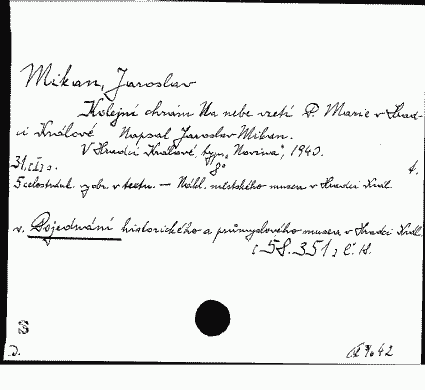 Mikan, Jaroslav
Kolejní chrám Na nebe vzetí P. Marie v Hrad-
ci Králové Napsal Jaroslav Mikan.
V Hradci Králové, typ. „Novina", 1940.
8° t.
31, [I] s.
5 celostránk. vyobr. v textu. — Nákl. městského musea v Hradci Král.
v. Pojednání historického a průmyslového musea v Hradci Král.
[58.351] č. 18.
D.
42